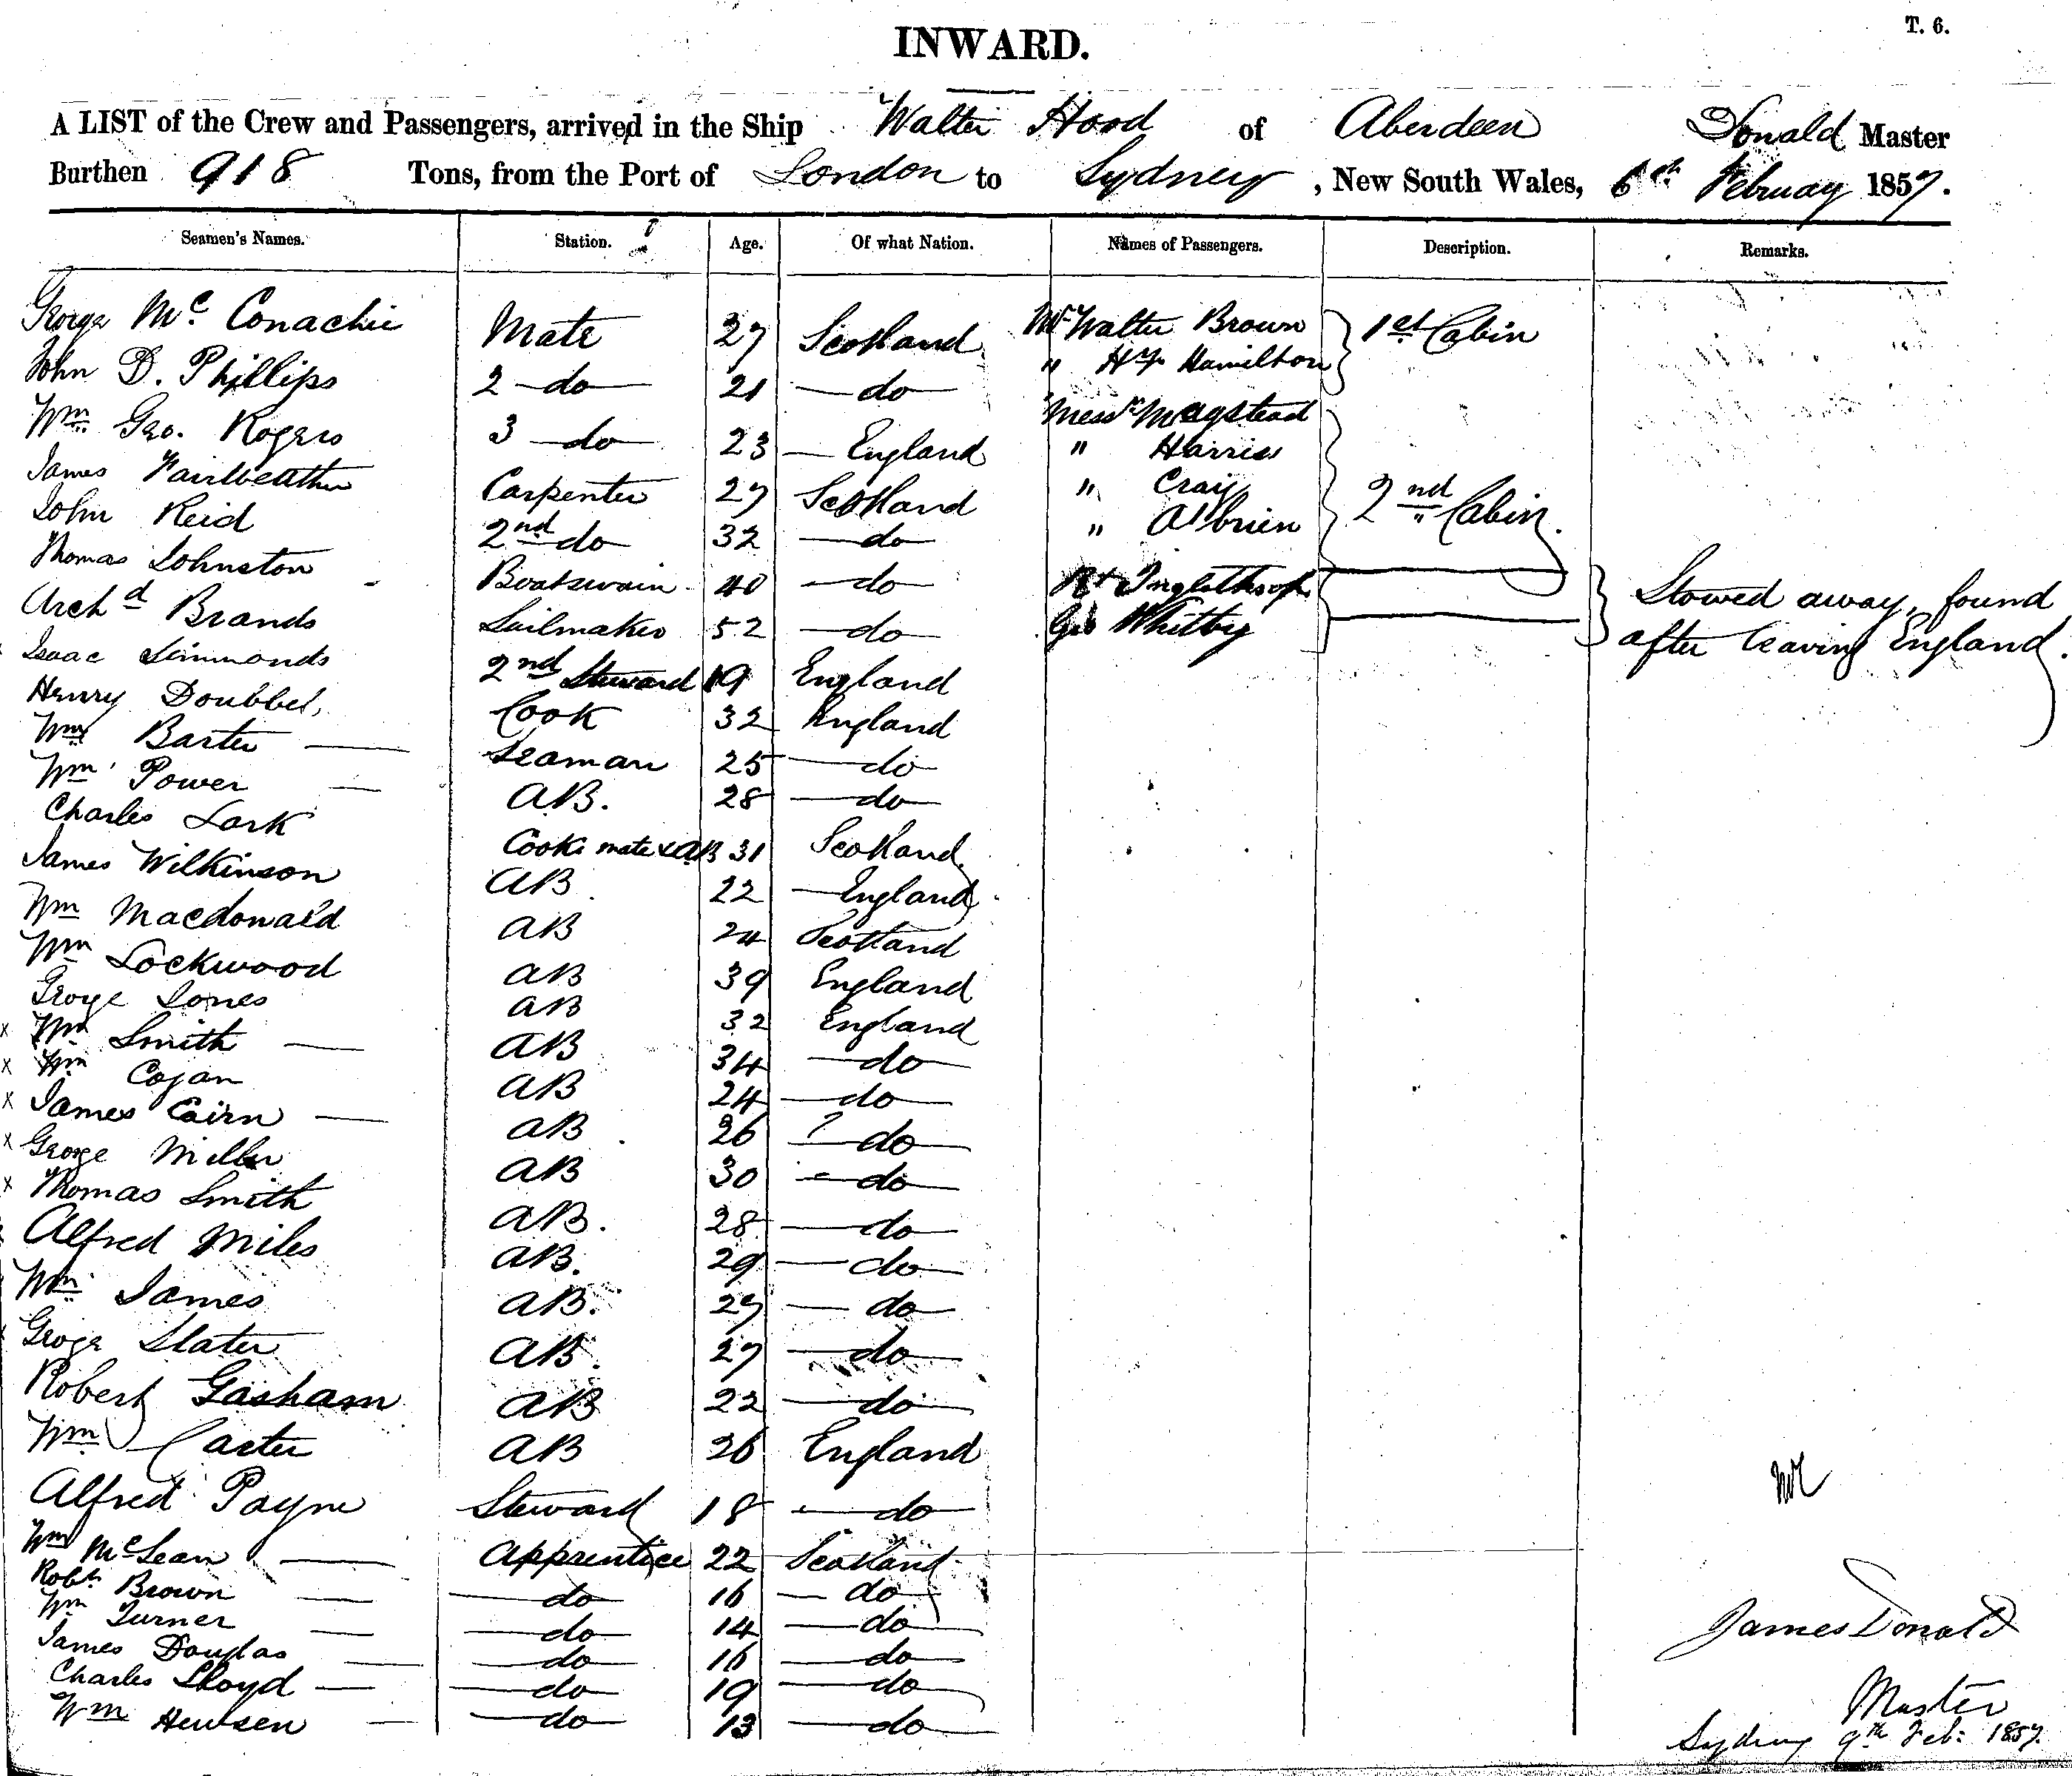 T. 6.
INWARD.
A LIST of the Crew and Passengers, arrived in the Ship Walter Hood of Aberdeen Donald Master
Burthen 918 Tons, from the Port of London to Sydney, New South Wales, 6th February 1857.
Seamen's Names. Station. Age. Of what Nation. Names of Passengers. Description. Remarks.
George McConachie Mate 27 Scotland Mr Walter Brown 1st Cabin
John D. Phillips 2 do 21 do " Hy Hamilton
Wm Geo. Rogers 3 do 23 England Messrs Magstead
" Harris
James Fairweather Carpenter 27 Scotland " Craig 2nd Cabin.
John Reid 2nd do 32 do " O'brien
Thomas Johnston Boatswain 40 do Rt Inglethorp Stowed away, found
Archd Brands Sailmaker 52 do Geo Whitby after leaving England.
Isaac Simmonds 2nd Steward 19 England
Henry Doubbel, Cook 32 England
Wm Barter Seaman 25 do
Wm Power AB. 28 do
Charles Lark Cooks mate & AB 31 Scotland
James Wilkinson AB 22 England
Wm Macdonald AB 24 Scotland
Wm Lockwood AB 39 England
George Jones AB 32 England
x Wm Smith AB 34 do
x Wm Cogan AB 24 do
x James Cairn AB 26 ? do
x George Miller AB 30 do
x Thomas Smith AB. 28 do
Alfred Miles AB. 29 do
Wm James AB. 27 do
George Slater AB. 27 do
Robert Gasham AB 22 do
Wm Carter AB 26 England
Alfred Payne Steward 18 do
Wm McLean Apprentice 22 Scotland
Robt Brown do 16 do
Wm Turner do 14 do
James Douglas do 16 do
Charles Lloyd do 19 do
Wm Hewsen do 13 do
James Donald
Master
Sydney 9th Feb: 1857.